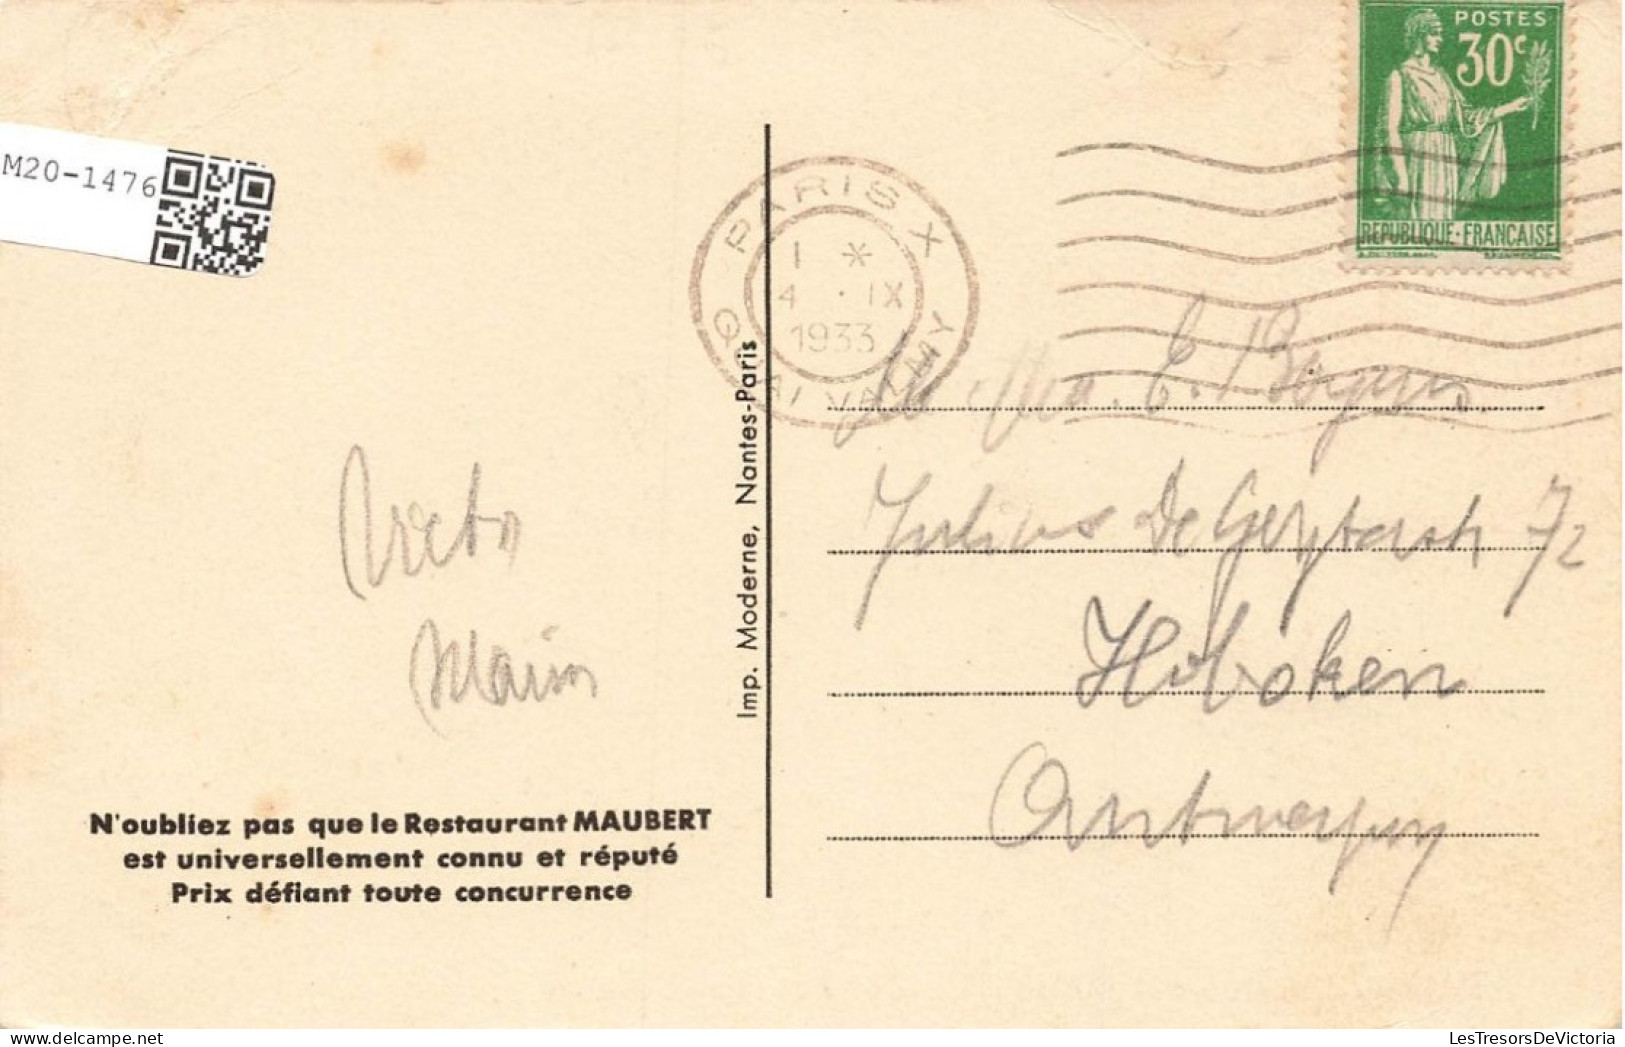 M20-1476
POSTES
30c
REPUBLIQUE·FRANCAISE
PARIS X
1 *
4 · IX
1933
QUAI VALMY
E. Bogers
Julius De Geyterstr 72
Hoboken
Antwerpen
Imp. Moderne, Nantes-Paris
N'oubliez pas que le Restaurant MAUBERT
est universellement connu et réputé
Prix défiant toute concurrence
LesTresorsDeVictoria